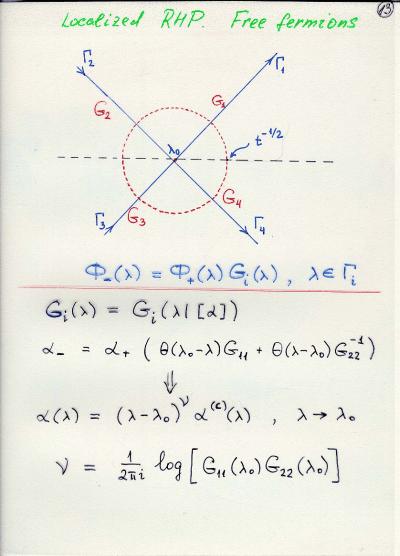 13
Localized RHP. Free fermions
Γ₂ Γ₁
G₂ G₁
λ₀ t^{-1/2}
Γ₃ G₃ G₄ Γ₄
Φ₋(λ) = Φ₊(λ) Gᵢ(λ), λ ∈ Γᵢ
Gᵢ(λ) = Gᵢ(λ|[α])
α₋ = α₊ (θ(λ₀-λ)G₁₁ + θ(λ-λ₀)G₂₂^{-1})
⇓
α(λ) = (λ-λ₀)^ν α^{(c)}(λ), λ → λ₀
ν = \frac{1}{2πi} log[G₁₁(λ₀)G₂₂(λ₀)]